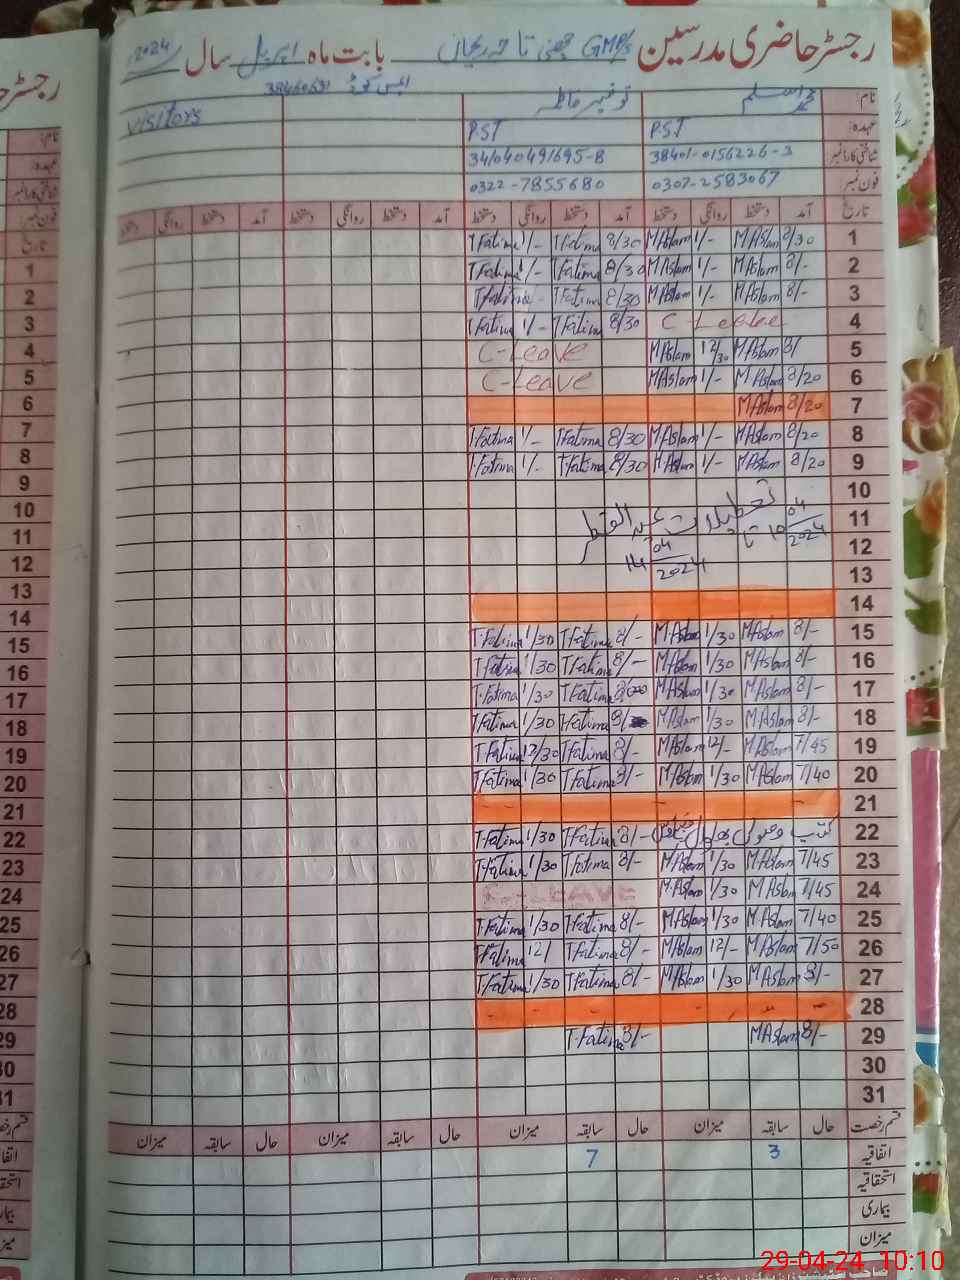 رجسٹر حاضری مدرسین GMP/S بابت ماہ اپریل سال 2024
38460631
نام: محمد اسلم
visitors
عہدہ: P.S.T P.S.T
شناختی کارڈ نمبر 38401-0156226-3 341040491695-8
فون نمبر 0307-2583067 0322-7855680
تاریخ آمد دستخط روانگی دستخط آمد دستخط روانگی دستخط آمد دستخط روانگی دستخط آمد دستخط روانگی دستخط
1 8/30 M Aslam 1/- M Aslam 8/30 T Fatima 1/- T Fatima
2 8/- M Aslam 1/- M Aslam 8/30 T Fatima 1/- T Fatima
3 8/- M Aslam 1/- M Aslam 8/30 T Fatima - T Fatima
4 C-Leave 8/30 T Fatima 1/- T Fatima
5 8/ M Aslam 12/30 M Aslam C-Leave
6 8/20 M Aslam 1/- M Aslam C-Leave
7 8/20 M Aslam
8 8/20 M Aslam 1/- M Aslam 8/30 T Fatima 1/- T Fatima
9 8/20 M Aslam 1/- M Aslam 8/30 T Fatima 1/- T Fatima
10
11 تعطیلات عید الفطر
12 10/04/2024 تا 14/04/2024
13
14
15 8/- M Aslam 1/30 M Aslam 8/- T.Fatima 1/30 T.Fatima
16 8/- M Aslam 1/30 M Aslam 8/- T Fatima 1/30 T Fatima
17 8/- M Aslam 1/30 M Aslam T Fatima 1/30 T.Fatima
18 8/- M Aslam 1/30 M Aslam T Fatima 1/30 T Fatima
19 7/45 M Aslam 12/- M Aslam 8/- T Fatima 12/30 T Fatima
20 7/40 M Aslam 1/30 M Aslam 8/- T Fatima 1/30 T Fatima
21
22 کتب وصولی 8/- T Fatima 1/30 T Fatima
23 7/45 M Aslam 1/30 M Aslam 8/- T Fatima 1/30 T Fatima
24 7/45 M Aslam 1/30 M Aslam C-LEAVE
25 7/40 M Aslam 1/30 M Aslam 8/- T Fatima 1/30 T Fatima
26 7/50 M Aslam 12/- M Aslam 8/- T Fatima 12/ T Fatima
27 8/- M Aslam 1/30 M Aslam 8/- T Fatima 1/30 T Fatima
28
29 8/- M Aslam 8/- T.Fatima
30
31
قسم رخصت حال سابقہ میزان حال سابقہ میزان حال سابقہ میزان حال سابقہ میزان
اتفاقیہ 3 7
استحقاقیہ
بیماری
میزان
29-04-24 10:10